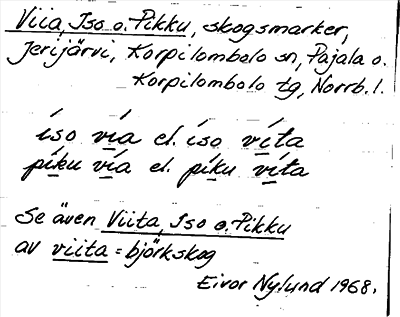 Viia, Iso o. Pikku, skogsmarker,
Jerijärvi, Korpilombolo sn, Pajala o.
Korpilombolo tg, Norrb. l.
íso vía el. íso víta
píku vía el. píku víta
Se även Viita, Iso o. Pikku
av viita = björkskog
Eivor Nylund 1968.